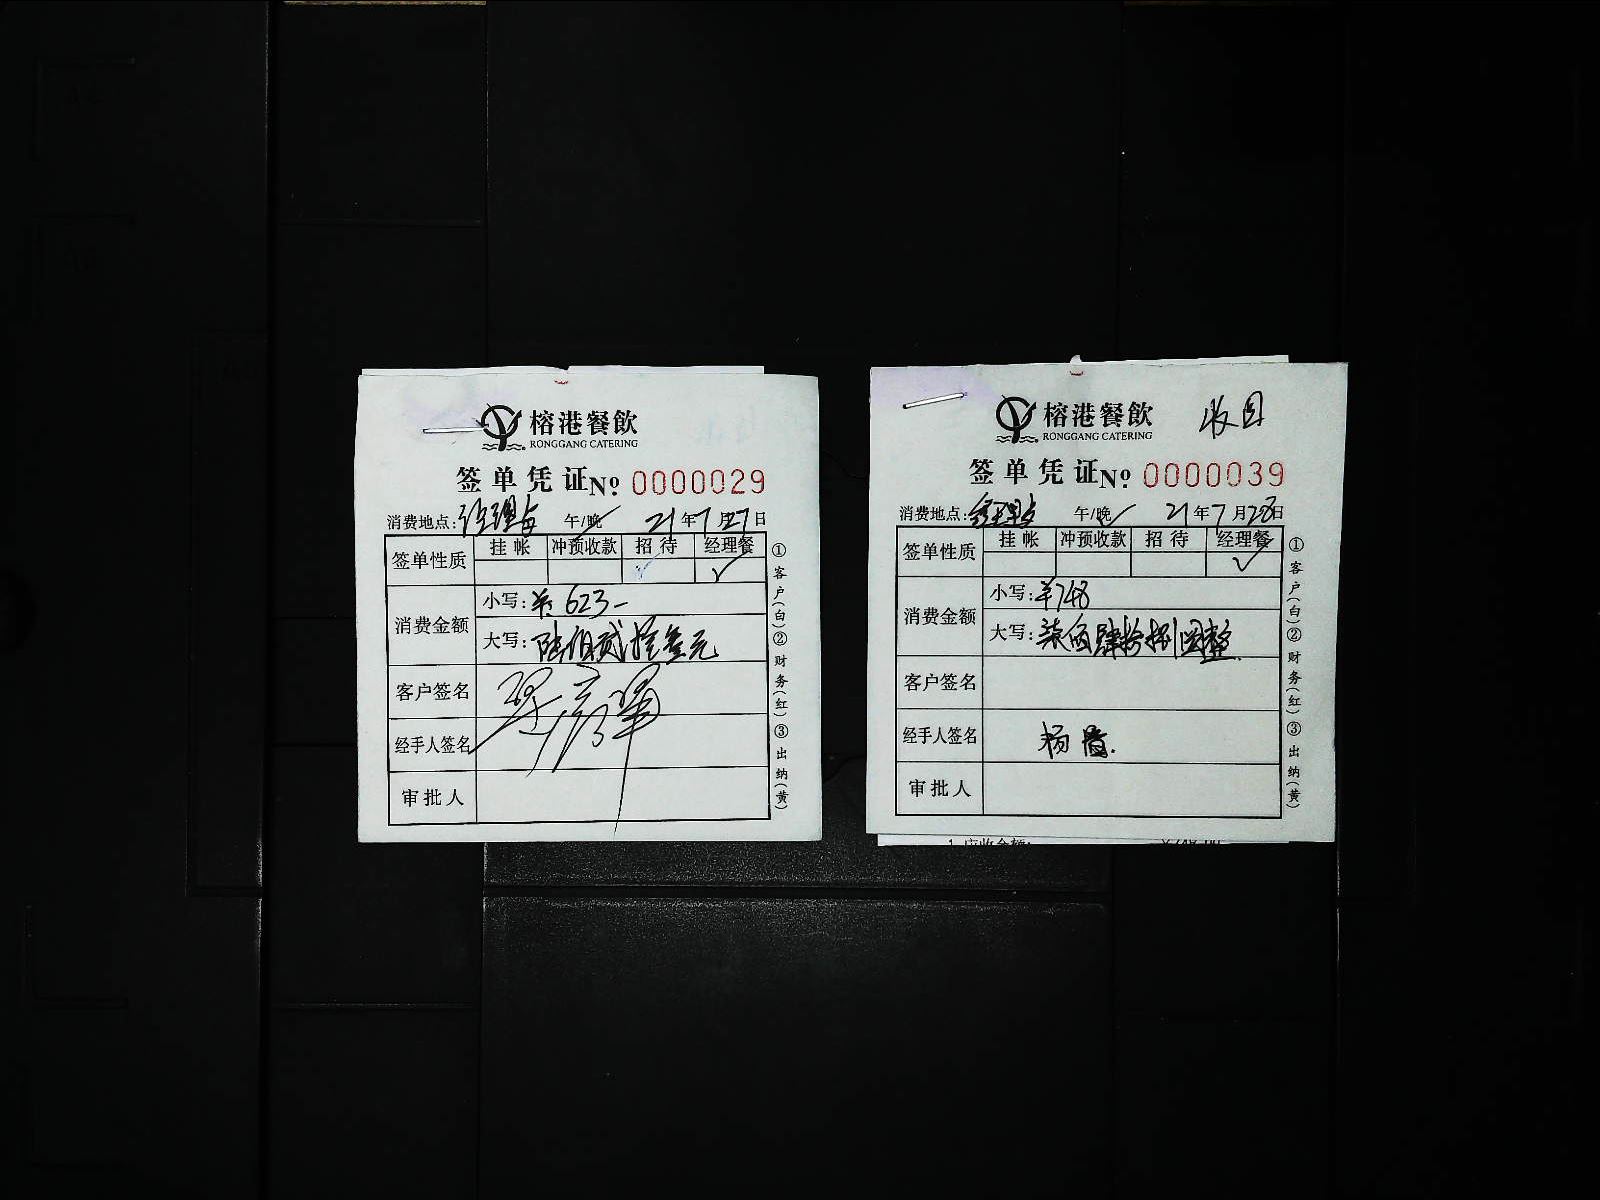 榕港餐飲
RONGGANG CATERING
签单凭证 Nº 0000029
消费地点: 经理 午/晚 21年7月27日
签单性质 挂帐 冲预收款 招待 经理餐
✓ ✓
消费金额
小写: ¥: 623-
大写: 陆佰贰拾叁元
客户签名
经手人签名
审批人
①客户(白)②财务(红)③出纳(黄)
榕港餐飲
RONGGANG CATERING
收回
签单凭证 Nº 0000039
消费地点: 经理 午/晚✓ 21年7月28日
签单性质 挂帐 冲预收款 招待 经理餐
✓
消费金额
小写: ¥748
大写: 柒佰肆拾捌圆整
客户签名
经手人签名 杨
审批人
①客户(白)②财务(红)③出纳(黄)